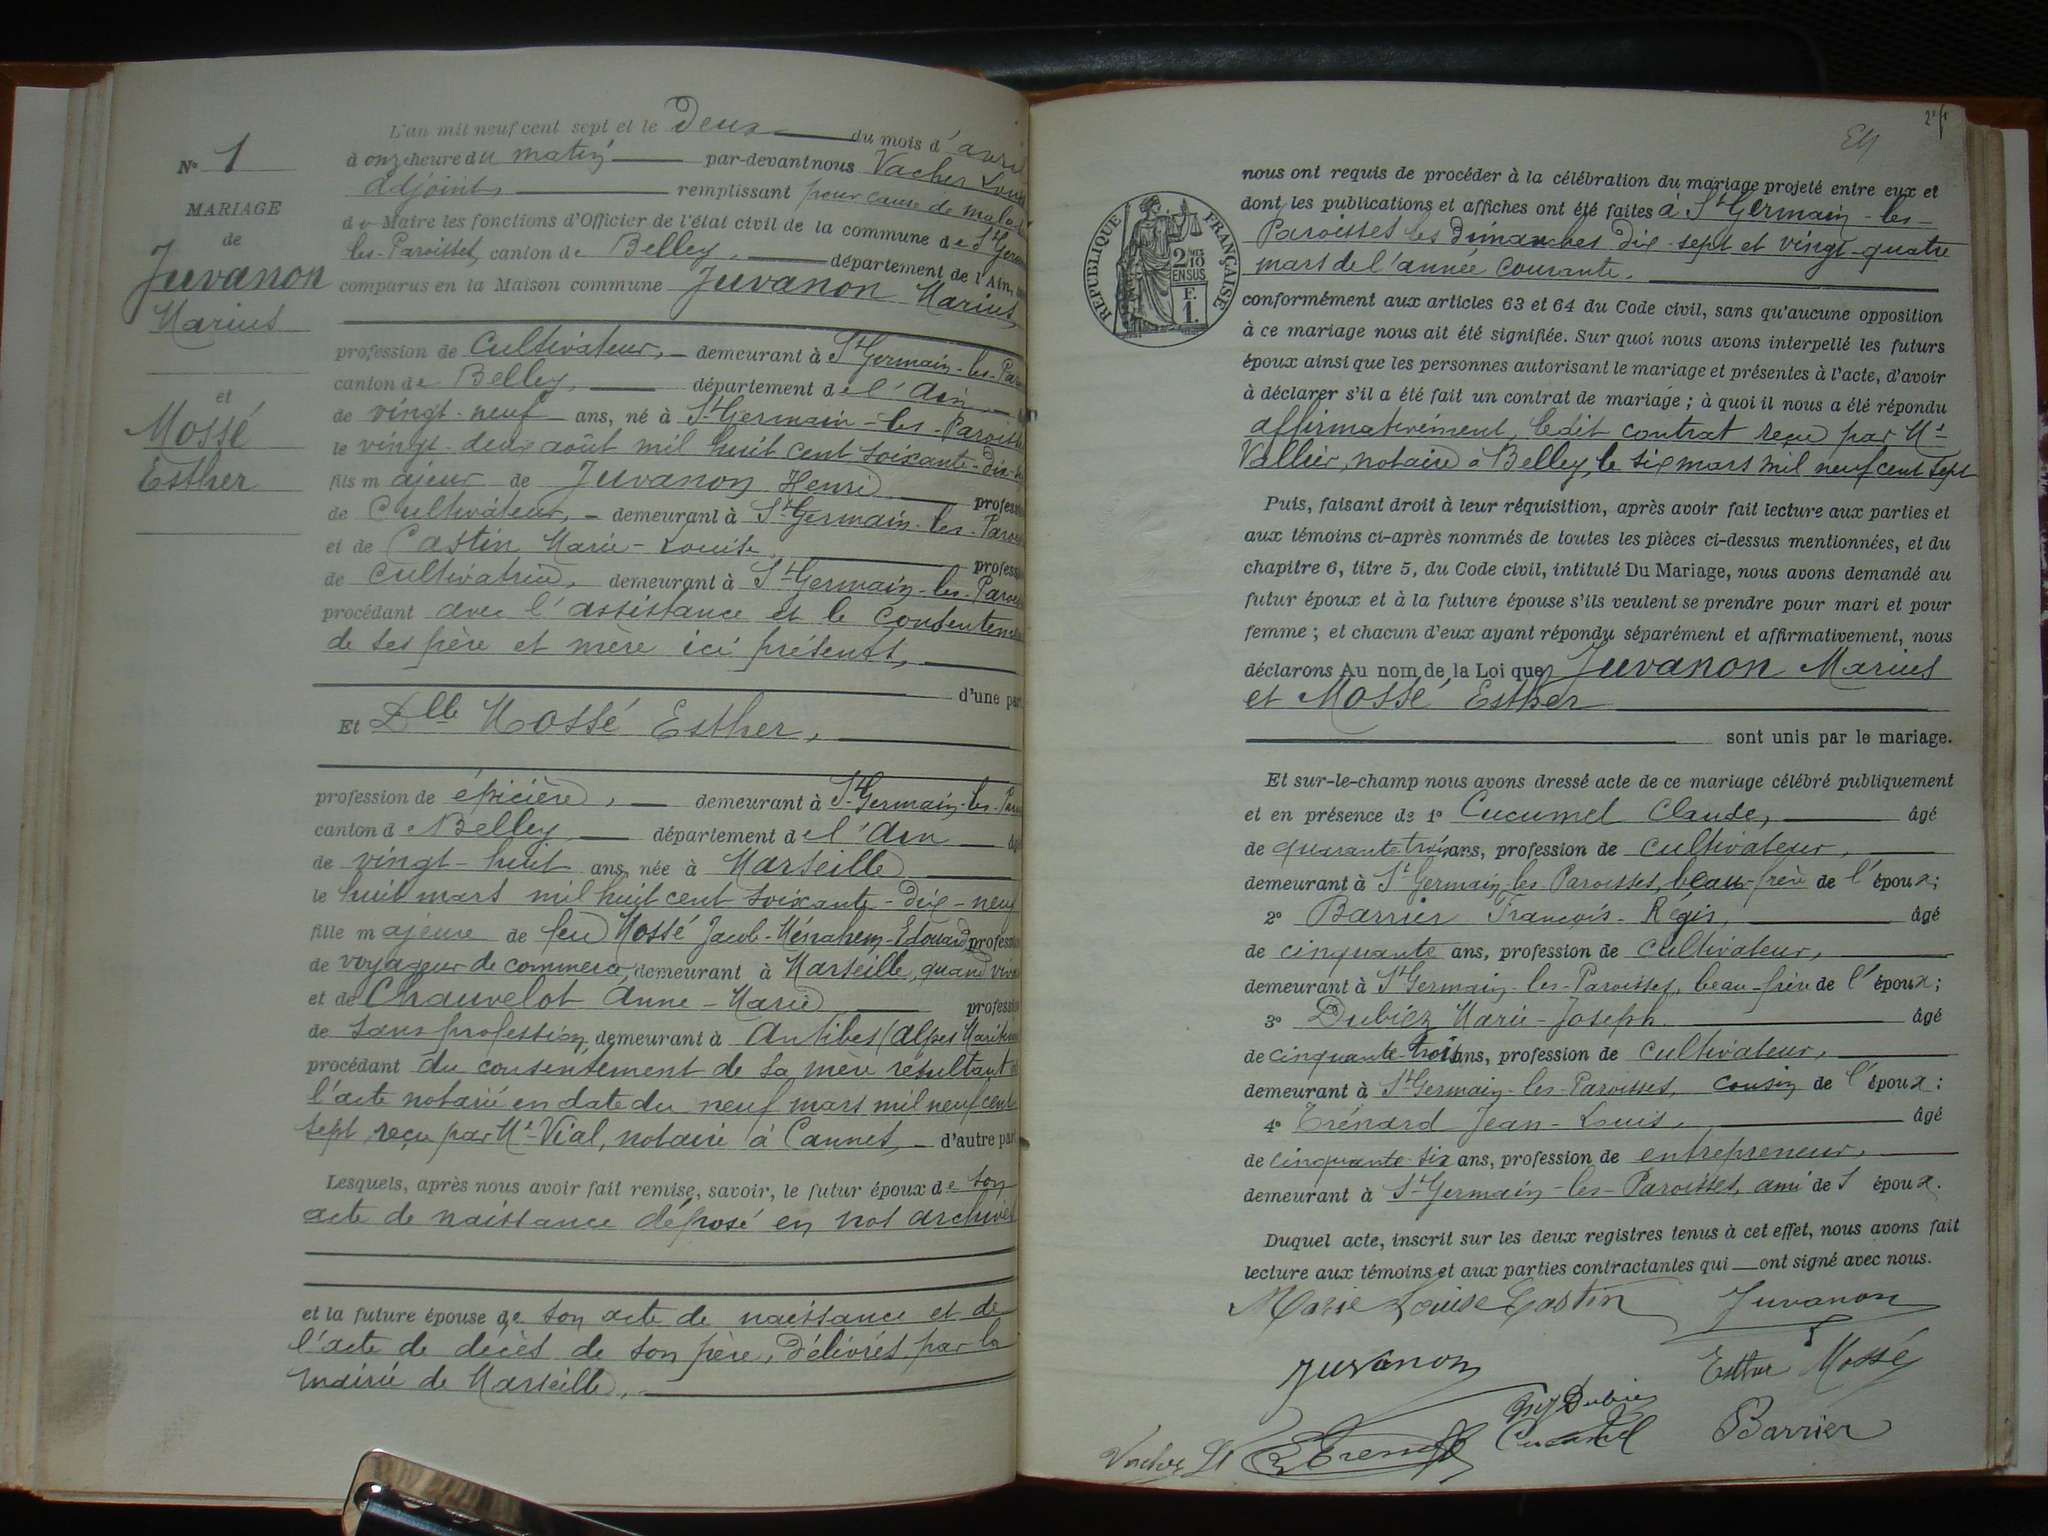 N° 1
MARIAGE
de
Juvanon
Marius
et
Mossé
Esther
L'an mil neuf cent sept et le Deux du mois d'avril
à onze heure du matin par-devant nous Vacher Louis
adjoint, remplissant pour cause de maladie
du Maire les fonctions d'Officier de l'état civil de la commune de St Germain
les-Paroisses, canton de Belley, département de l'Ain,
comparus en la Maison commune Juvanon Marius,
profession de Cultivateur, demeurant à St Germain-les-Par
canton de Belley, département de l'Ain
de vingt-neuf ans, né à St Germain-les-Paroisses
le vingt-deux août mil huit cent soixante-dix-
fils majeur de Juvanon Henri profession
de Cultivateur, demeurant à St Germain-les-Paroi
et de Castin Marie-Louise, profession
de Cultivatrice, demeurant à St Germain-les-Paroi
procédant avec l'assistance et le consentement
de ses père et mère ici présents,
d'une part
Et Dlle Mossé Esther,
profession de épicière, demeurant à St Germain-les-Par
canton de Belley département de l'Ain âgé
de vingt-huit ans, née à Marseille
le huit mars mil huit cent soixante-dix-neuf
fille majeure de feu Mossé Jacob-Ménahem-Edouard profession
de voyageur de commerce, demeurant à Marseille, quand vivait
et de Chauvelot Anne-Marie profession
de sans profession, demeurant à Antibes (Alpes Maritimes
procédant du consentement de sa mère résultant de
l'acte notarié en date du neuf mars mil neuf cent
sept, reçu par Me Vial, notaire à Cannes, d'autre part
Lesquels, après nous avoir fait remise, savoir, le futur époux de son
acte de naissance déposé en nos archives
et la future épouse de son acte de naissance et de
l'acte de décès de son père, délivrés par la
mairie de Marseille,
RÉPUBLIQUE FRANÇAISE
2/10 EN SUS
F. 1.
nous ont requis de procéder à la célébration du mariage projeté entre eux et
dont les publications et affiches ont été faites à St Germain-les-
Paroisses les dimanches dix-sept et vingt-quatre
mars de l'année courante,
conformément aux articles 63 et 64 du Code civil, sans qu'aucune opposition
à ce mariage nous ait été signifiée. Sur quoi nous avons interpellé les futurs
époux ainsi que les personnes autorisant le mariage et présentes à l'acte, d'avoir
à déclarer s'il a été fait un contrat de mariage ; à quoi il nous a été répondu
affirmativement, ledit contrat reçu par Me
Vallier, notaire à Belley, le six mars mil neuf cent sept
Puis, faisant droit à leur réquisition, après avoir fait lecture aux parties et
aux témoins ci-après nommés de toutes les pièces ci-dessus mentionnées, et du
chapitre 6, titre 5, du Code civil, intitulé Du Mariage, nous avons demandé au
futur époux et à la future épouse s'ils veulent se prendre pour mari et pour
femme ; et chacun d'eux ayant répondu séparément et affirmativement, nous
déclarons Au nom de la Loi que Juvanon Marius
et Mossé Esther
sont unis par le mariage.
Et sur-le-champ nous avons dressé acte de ce mariage célébré publiquement
et en présence de 1° Cucumel Claude, âgé
de quarante trois ans, profession de cultivateur,
demeurant à St Germain-les-Paroisses, beau-frère de l'époux ;
2° Barrier François-Régis, âgé
de cinquante ans, profession de cultivateur,
demeurant à St Germain-les-Paroisses, beau-frère de l'époux ;
3° Dubiez Marie-Joseph âgé
de cinquante-trois ans, profession de cultivateur,
demeurant à St Germain-les-Paroisses, cousin de l'époux ;
4° Trénard Jean-Louis, âgé
de cinquante-six ans, profession de entrepreneur,
demeurant à St Germain-les-Paroisses, ami des époux.
Duquel acte, inscrit sur les deux registres tenus à cet effet, nous avons fait
lecture aux témoins et aux parties contractantes qui ont signé avec nous.
Marie Louise Castin Juvanon
Juvanon Esther Mossé
Dubiez
Cucumel Barrier
Vacher Ls Trenard